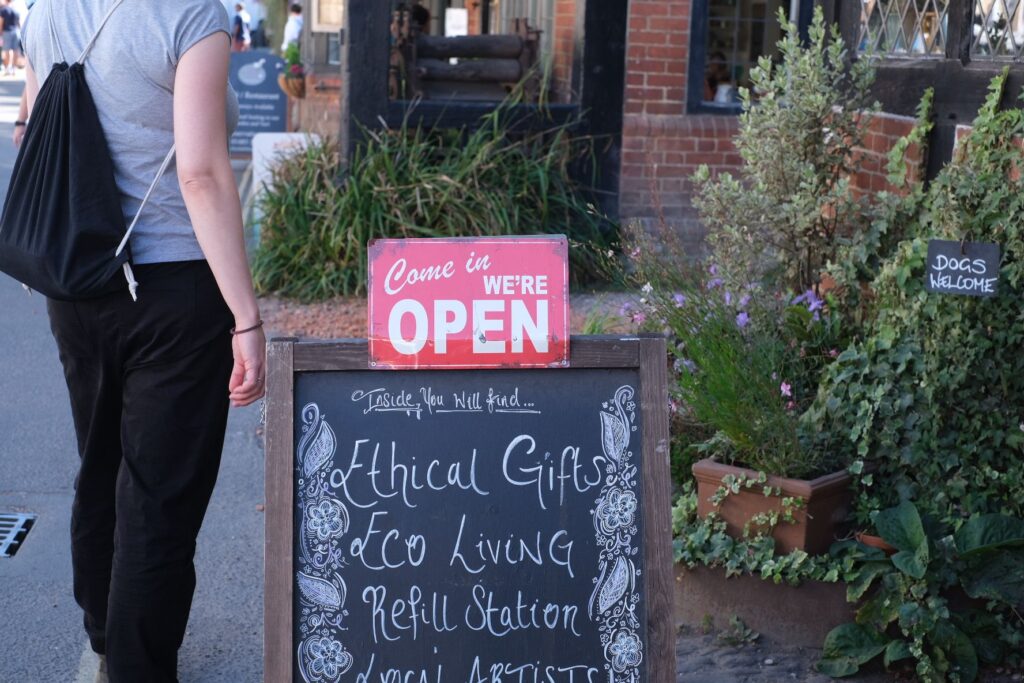 Restaurant
Come in
WE'RE
OPEN
DOGS
WELCOME
Inside, You Will find...
Ethical Gifts
Eco Living
Refill Station
Local Artists